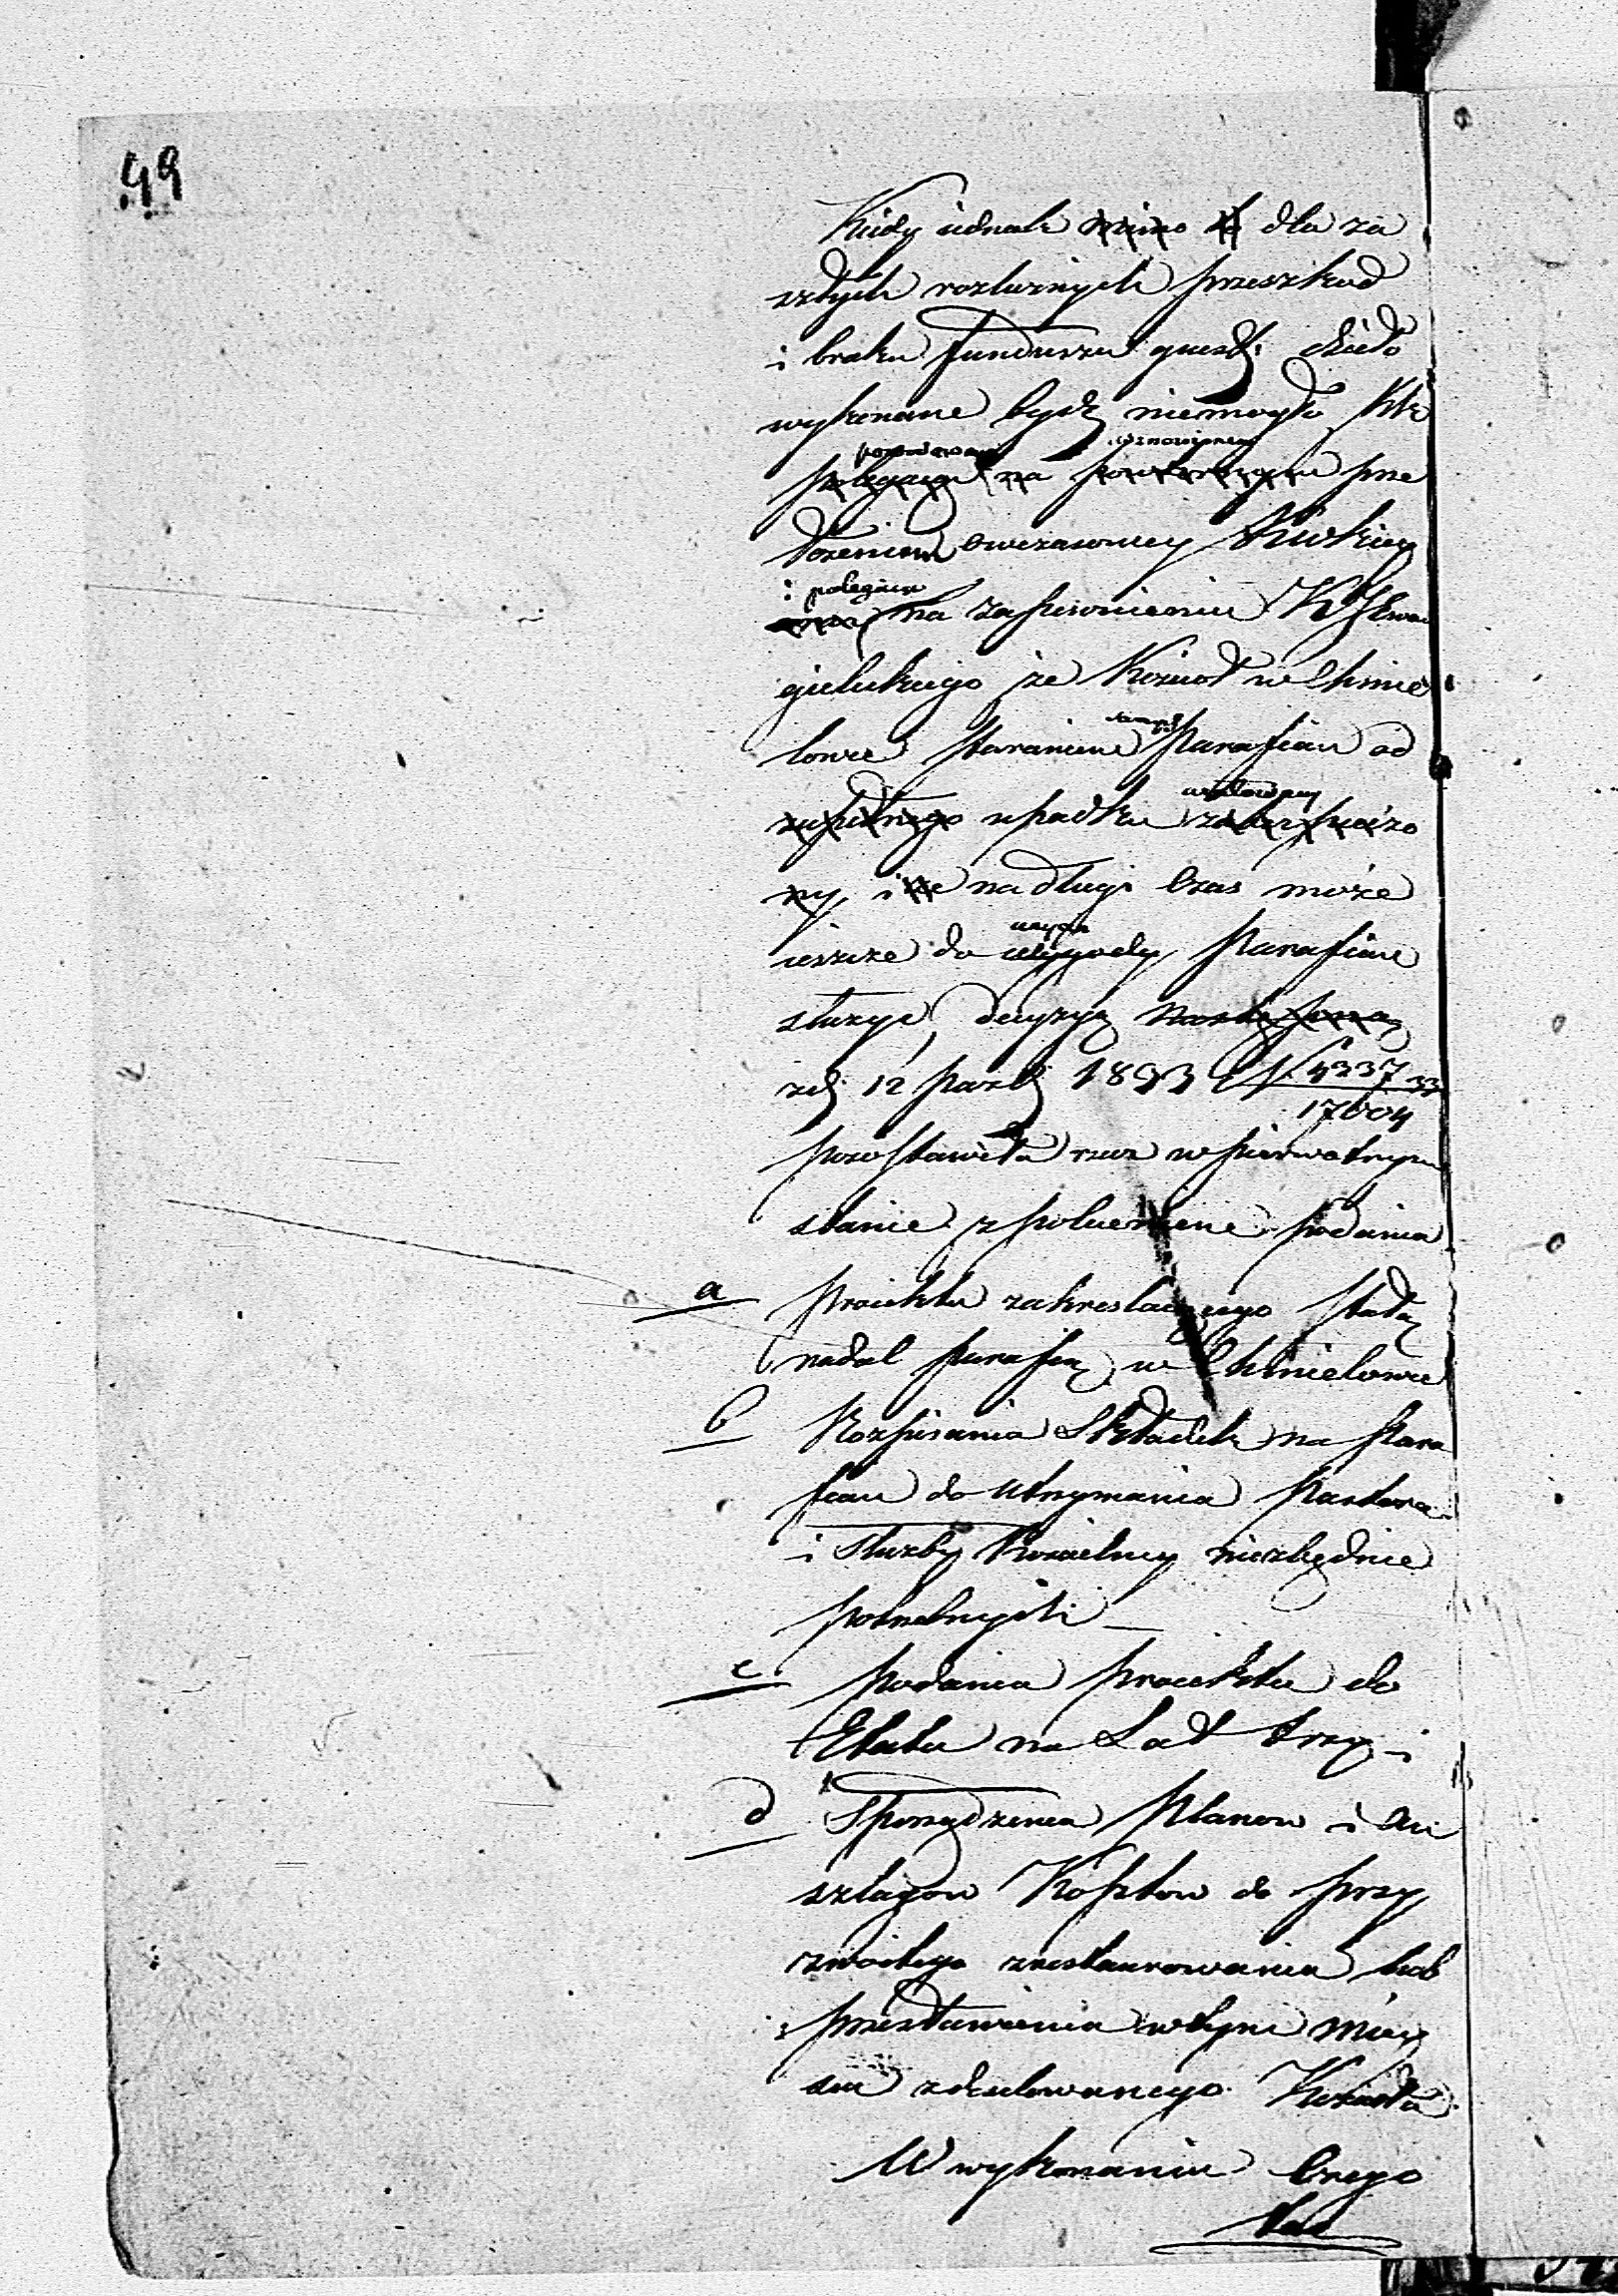 49
Kiedy iednak mimo to dla za
szłych rozlicznych przeszkód
i braku funduszu dzieło
wykonane bydź niemogło
powodowana wznowionem
polegając na powtórnym prze
łożeniem owczasowey
i polegaiąc
na zapewnieniu
gielickiego że Kościoł w Chmie
lowie staraniem samych Parafian od
zupełnego upadku uratowany zabespieczo
ny, i że na długi czas może
ieszcze do użytku wygody Parafian
służyć, decyzyą
zd. 12 Pazd. 1833 N 4337/17604 33
pozostawiła rzecz w pierwotnym
stanie z poleceniem podania
a proiektu zakreslaiącego stałą
nadal parafią w Chmielowie
b Rozpisania Składek na Para
fian do utrzymania Pastora
i Służby Kościelney niezbędnie
potrzebnych
c podania proiektu do
Etatu na Lat trzy i
d Sporządzenia Planow i An
szlagow Kosztow do przy
zwoitego zrestaurowania lub
przestawienia w tym miey
scu zdezelowanego Kościoła
W wykonaniu czego